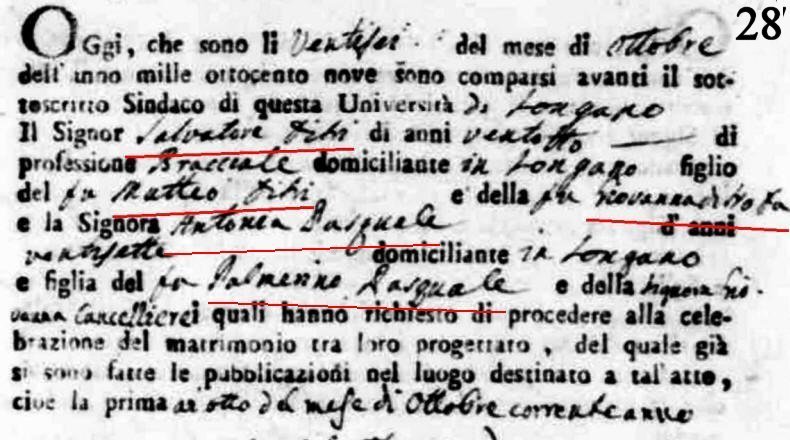 28'
Oggi, che sono li Ventisei del mese di Ottobre
dell'anno mille ottocento nove sono comparsi avanti il sot-
toscritto Sindaco di questa Università di Longano
Il Signor Salvatore di anni ventotto di
professione Bracciale domiciliante in Longano figlio
del fu Matteo e della fu Giovanna di
e la Signora Antonia Pasquale d'anni
ventisette domiciliante in Longano
e figlia del fu Palmerino Pasquale e della Signora Gio-
vanna Cancellieri quali hanno richiesto di procedere alla cele-
brazione del matrimonio tra loro progettato, del quale già
si sono fatte le pubblicazioni nel luogo destinato a tal'atto,
cioè la prima a otto del mese di Ottobre corrente anno